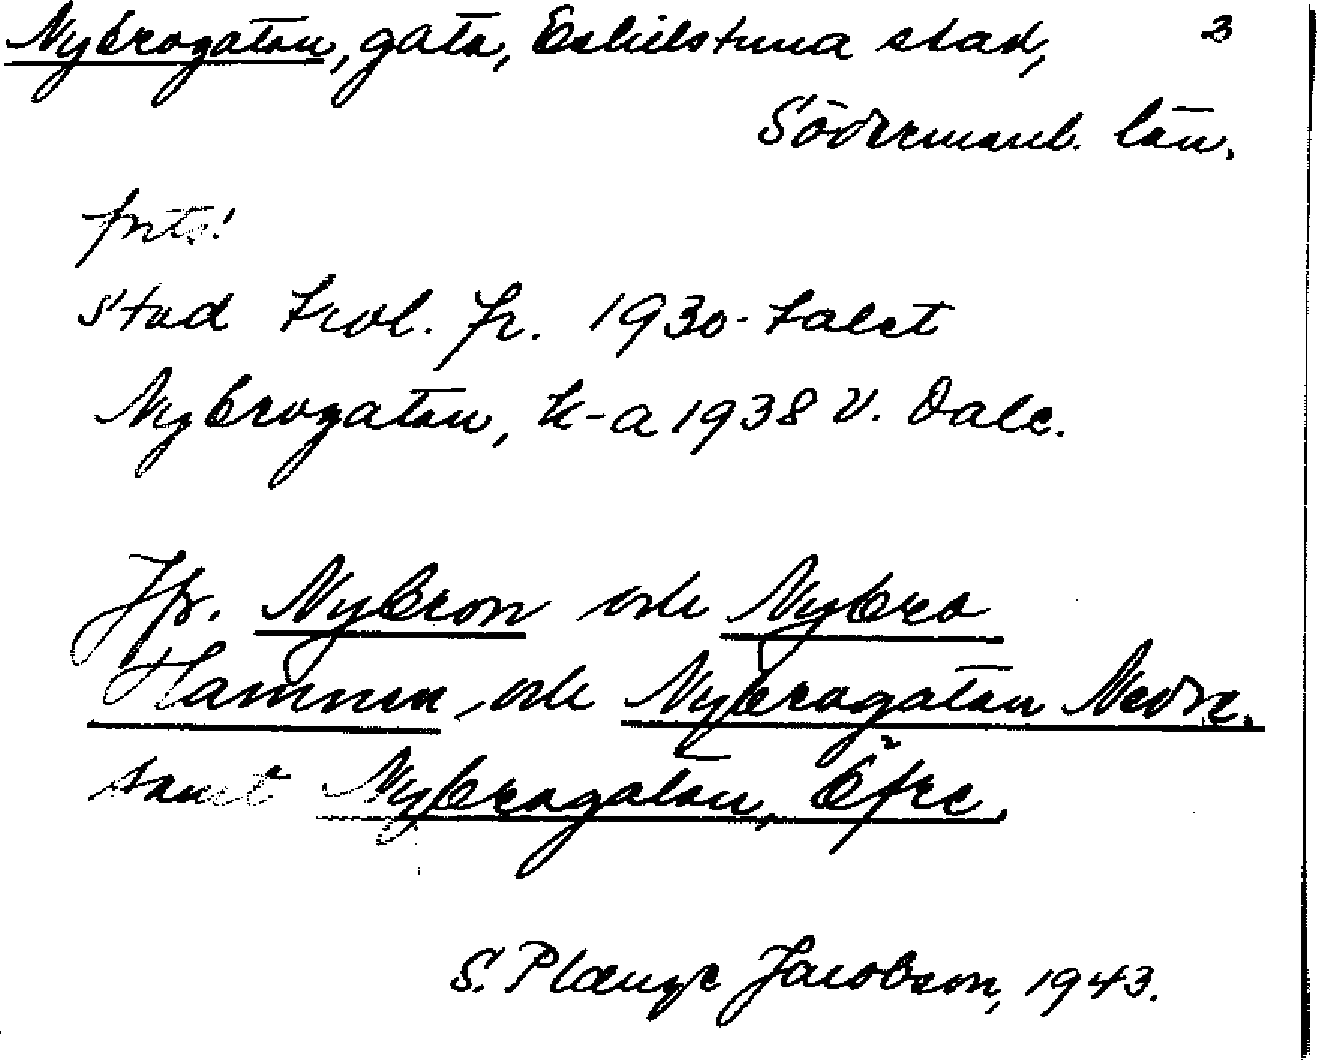 Nybrogatan, gata, Eskilstuna stad, 3
Södermanl. län.
forts!
stad trol. fr. 1930-talet
Nybrogatan, k-a 1938 v. Dale.
Jfr. Nybron och Nybro
Hamnen, och Nybrogatan Nedre.
samt Nybrogatan, Öfre.
S. Plænge Jacobson, 1943.